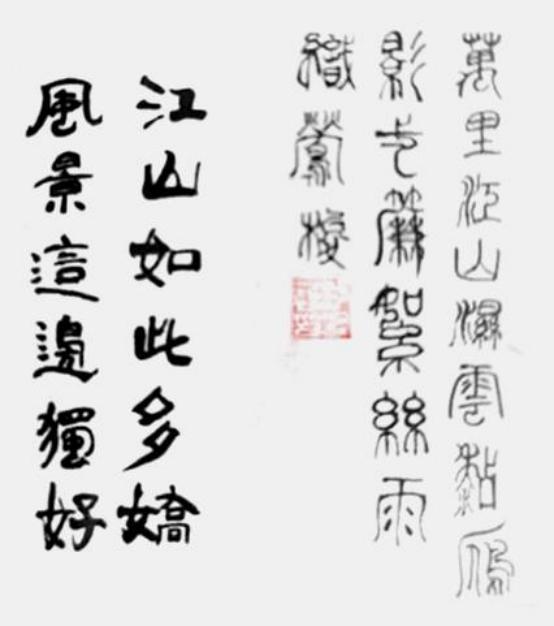 萬里江山濕雲黏雁
影簾絮絲雨
織鶯梭
江山如此多嬌
風景這邊獨好